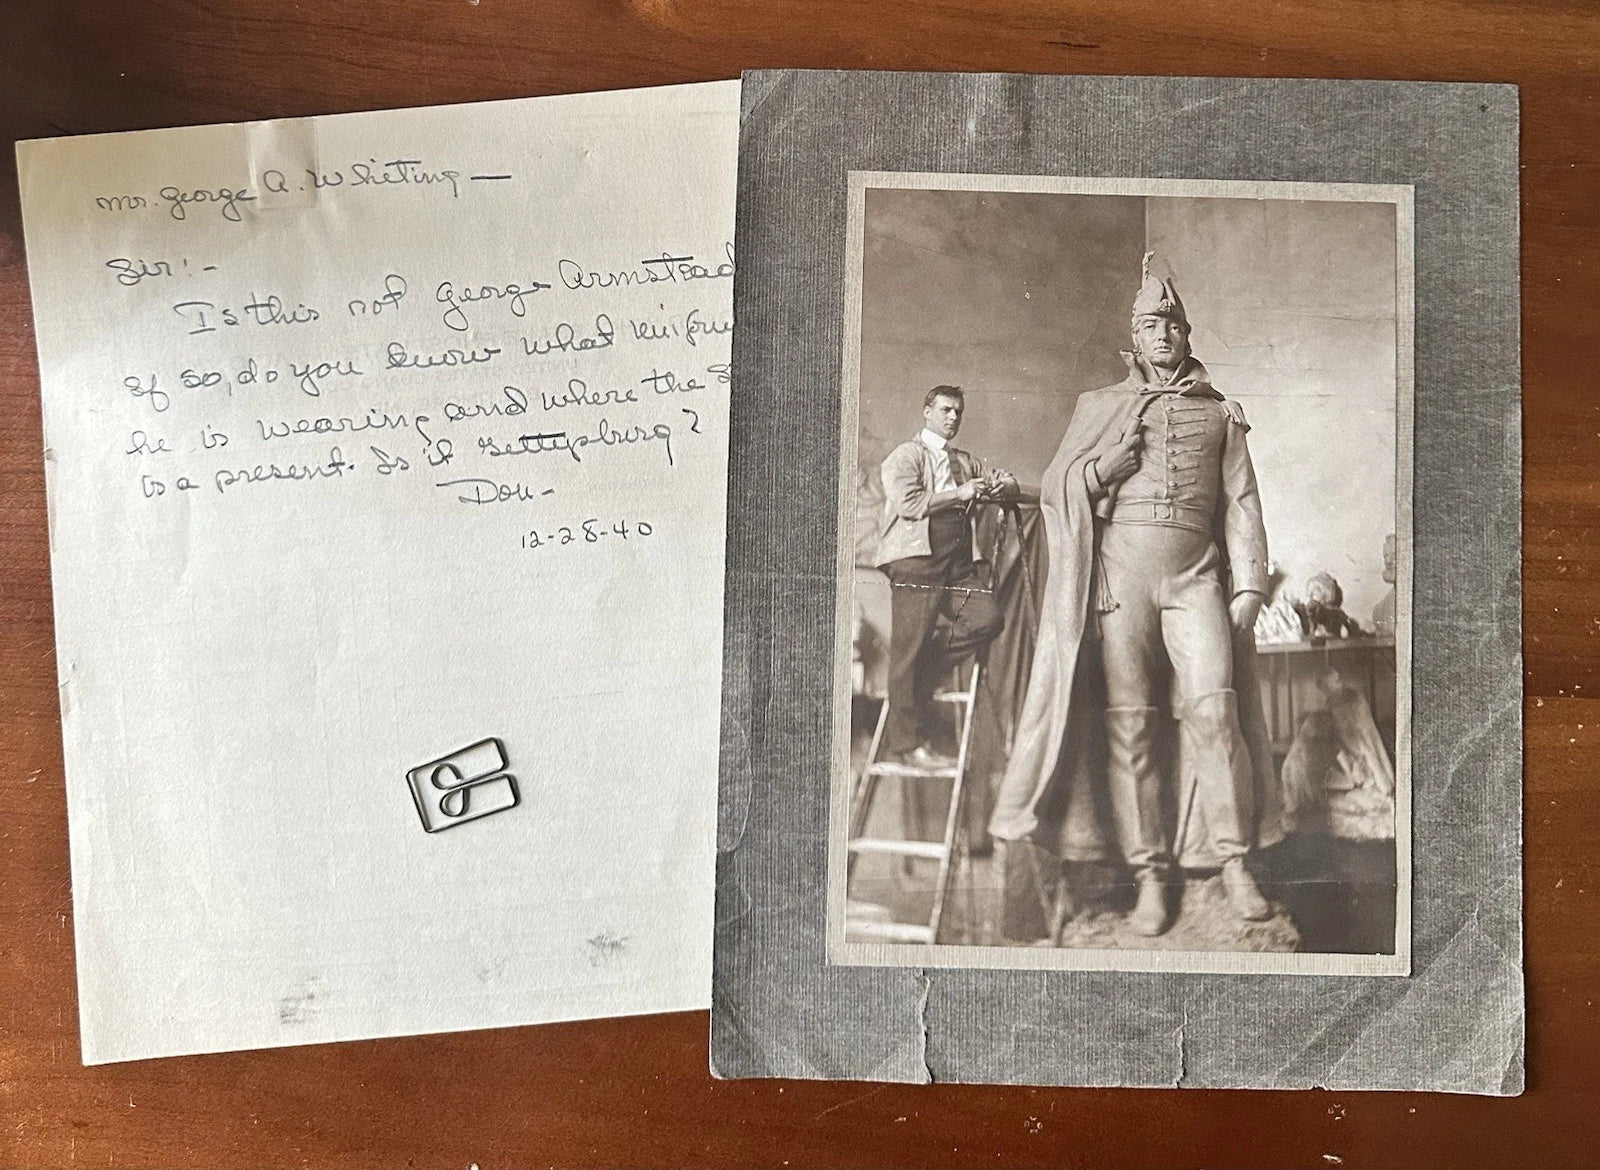 Mr. George A. Whiting —
Sir: -
Is this not George Armstead
If so, do you know what
he is wearing and where the
is a present. Is it Gettysburg?
Don -
12-28-40